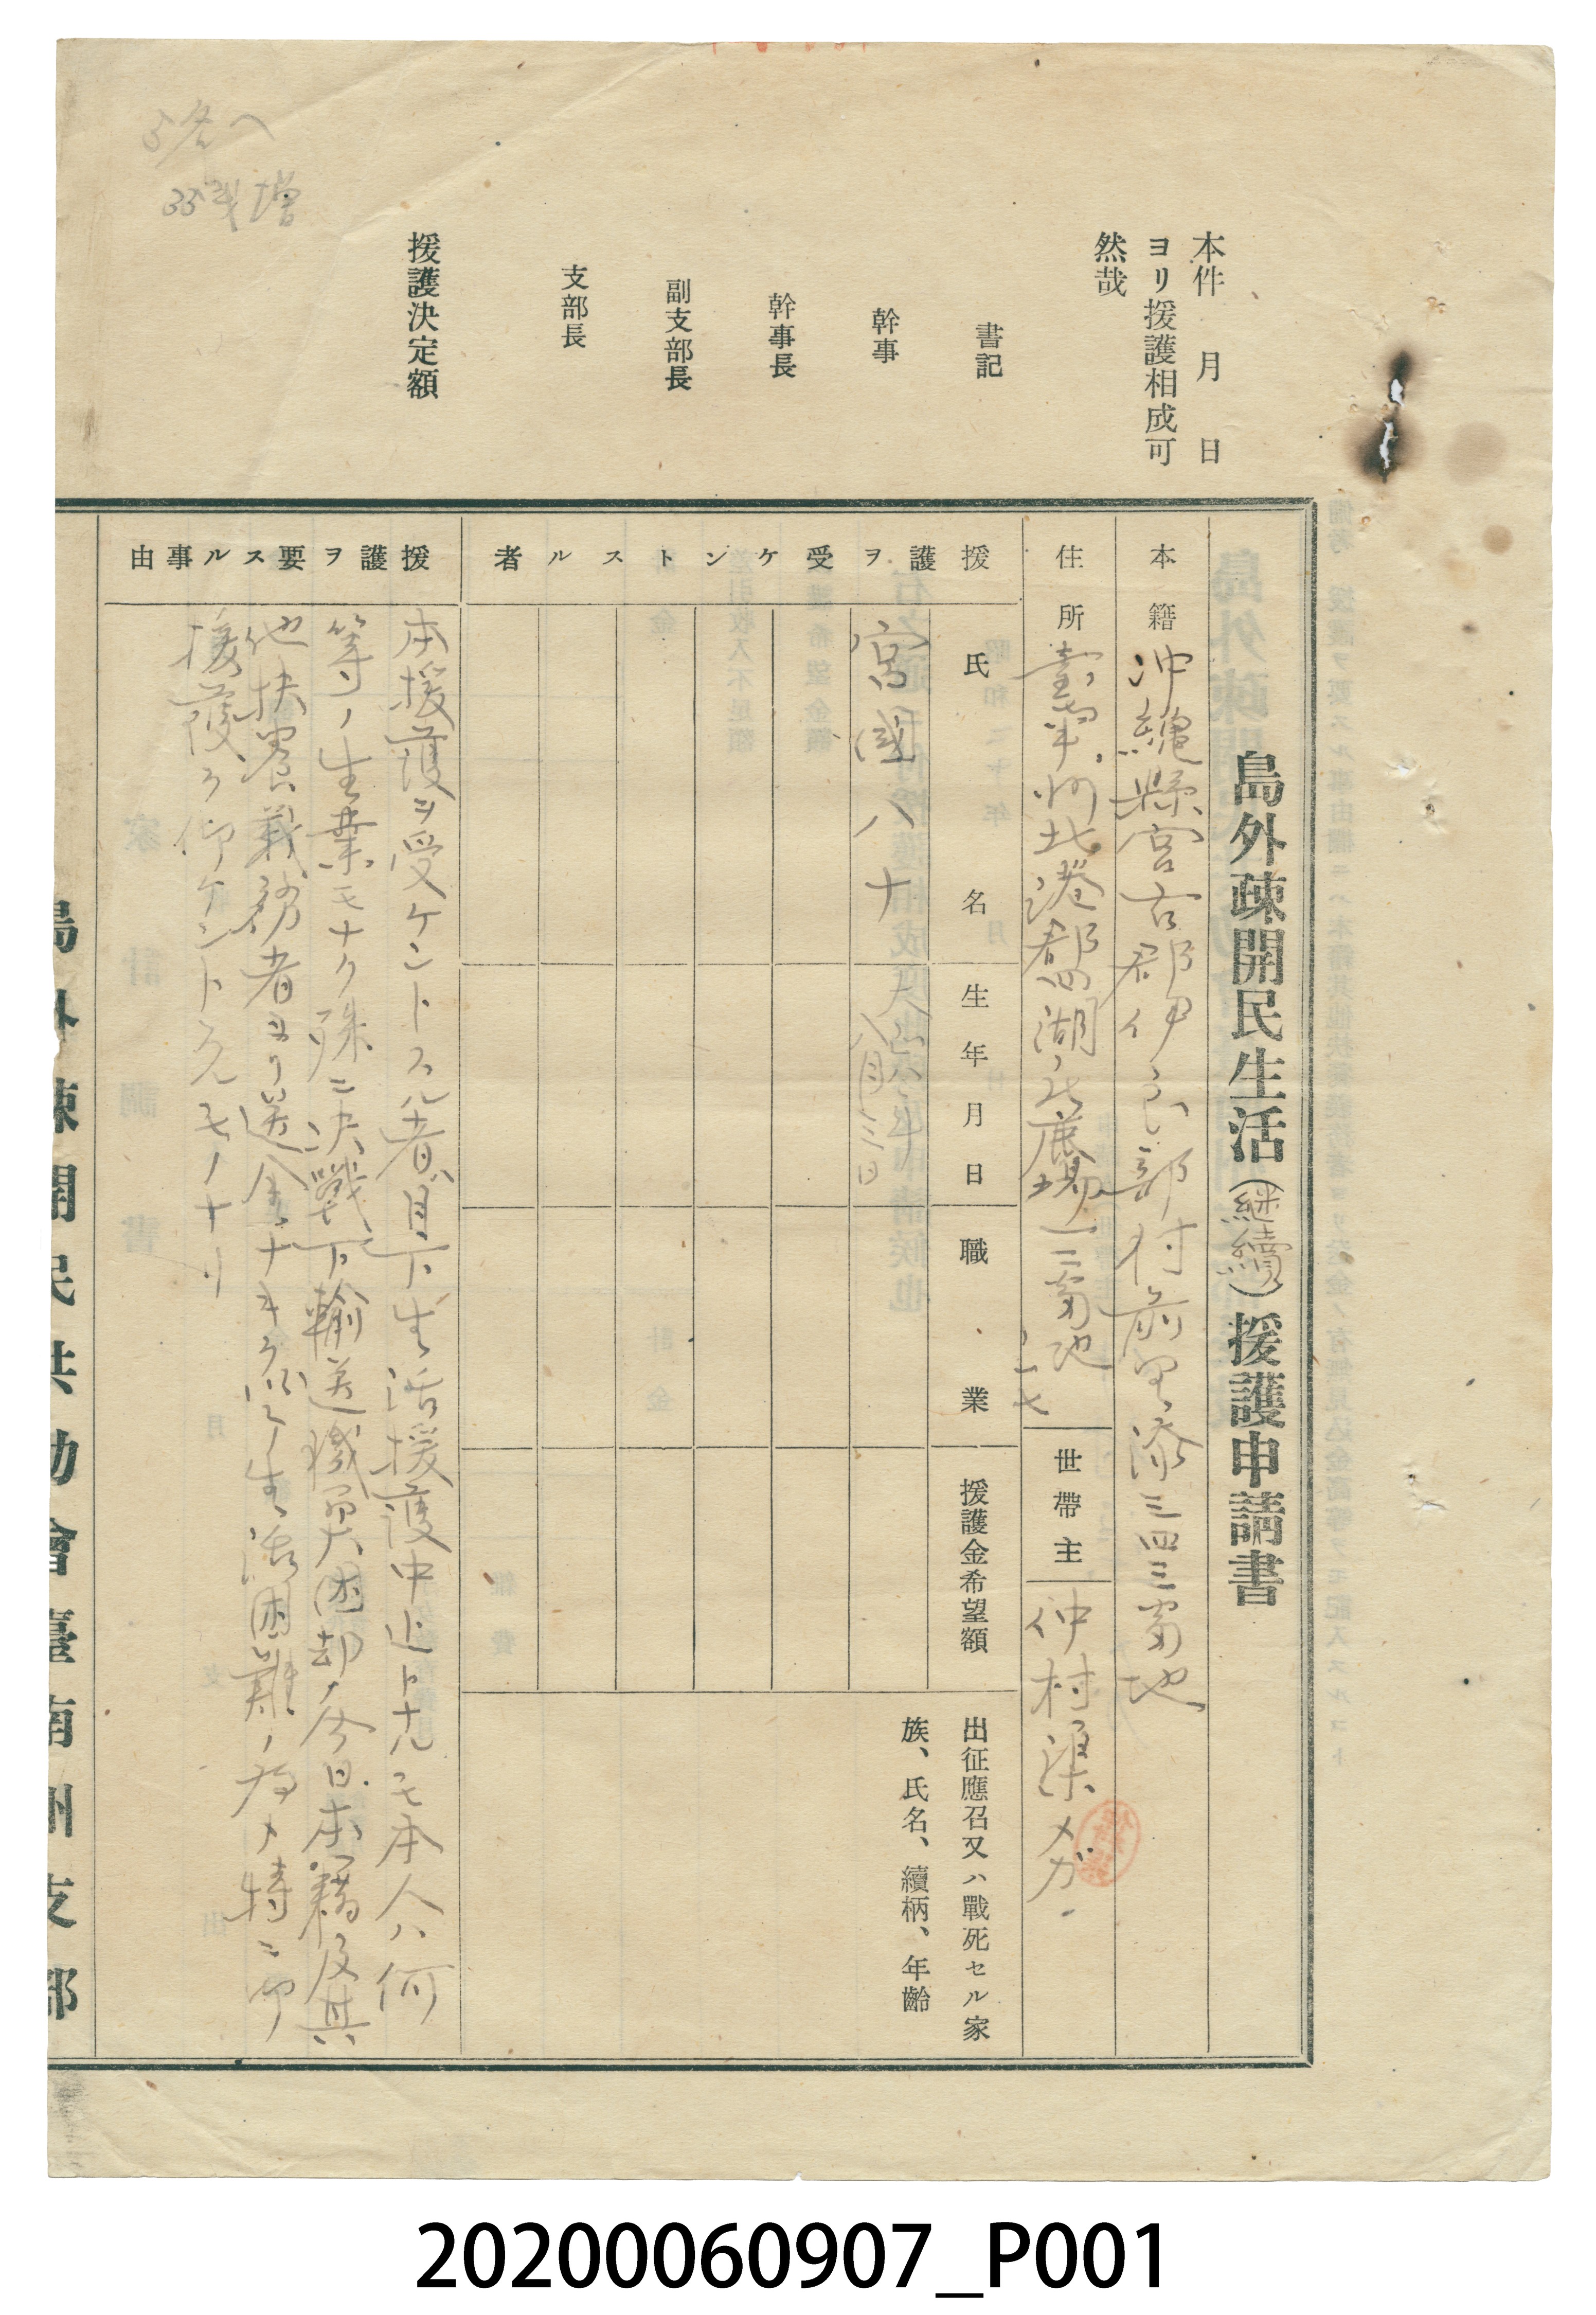 島外疎開民生活（継續）援護申請書
本件　月　日
ヨリ援護相成可
然哉
書記
幹事
幹事長
副支部長
支部長
援護決定額
5名へ
本籍
沖縄縣宮古郡伊良部村前里添三四三番地
住所
臺南州北港郡四湖庄鹿場一二番地
世帶主
仲村渠メガ
援護ヲ受ケントスル者
氏名
生年月日
職業
援護金希望額
出征應召又ハ戰死セル家
族、氏名、續柄、年齡
宮國八十
八月三日
援護ヲ要スル事由
本援護ヲ受ケントスル者ハ目下生活援護中止トナルモ本人ハ何
等ノ生業モナク殊ニ決戰下輸送機関困却ノ今日本籍及其
他扶養義務者ヨリ送金ナキヲ以テ生活困難ノ為メ特ニ御
援護ヲ仰ケントスルモノナリ
島外疎開民共助會臺南州支部
20200060907_P001